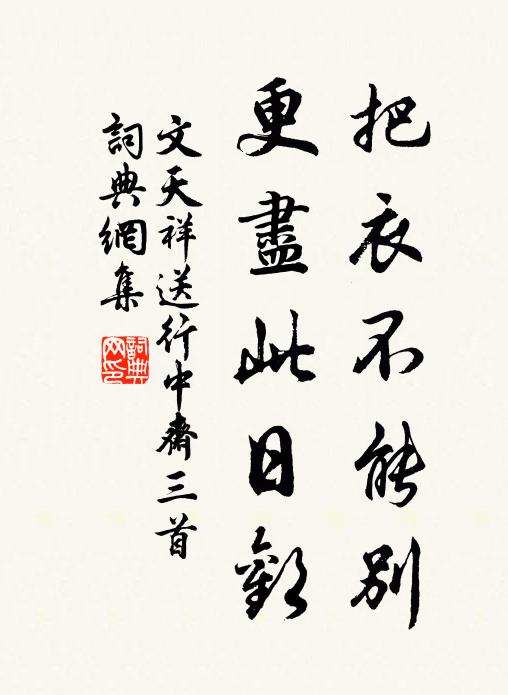 把衣不能別
更盡此日歡
文天祥送行中齋三首
詞典網集
詞典網印